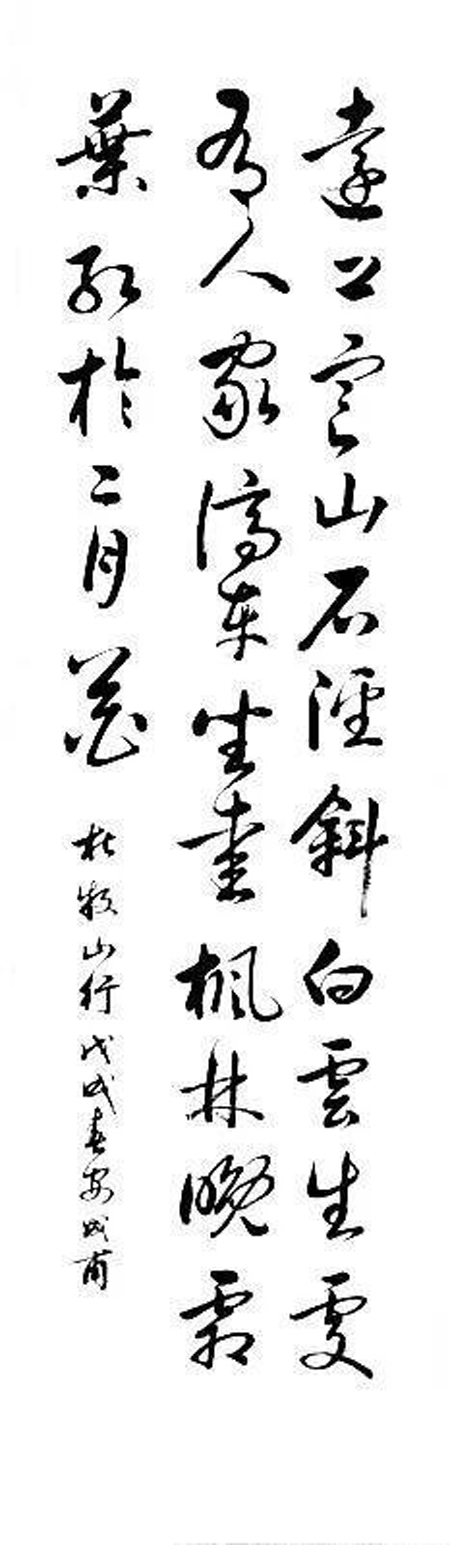 遠上寒山石徑斜白雲生處
有人家停車坐愛楓林晚霜
葉紅於二月花 杜牧山行戊戌春安成甫